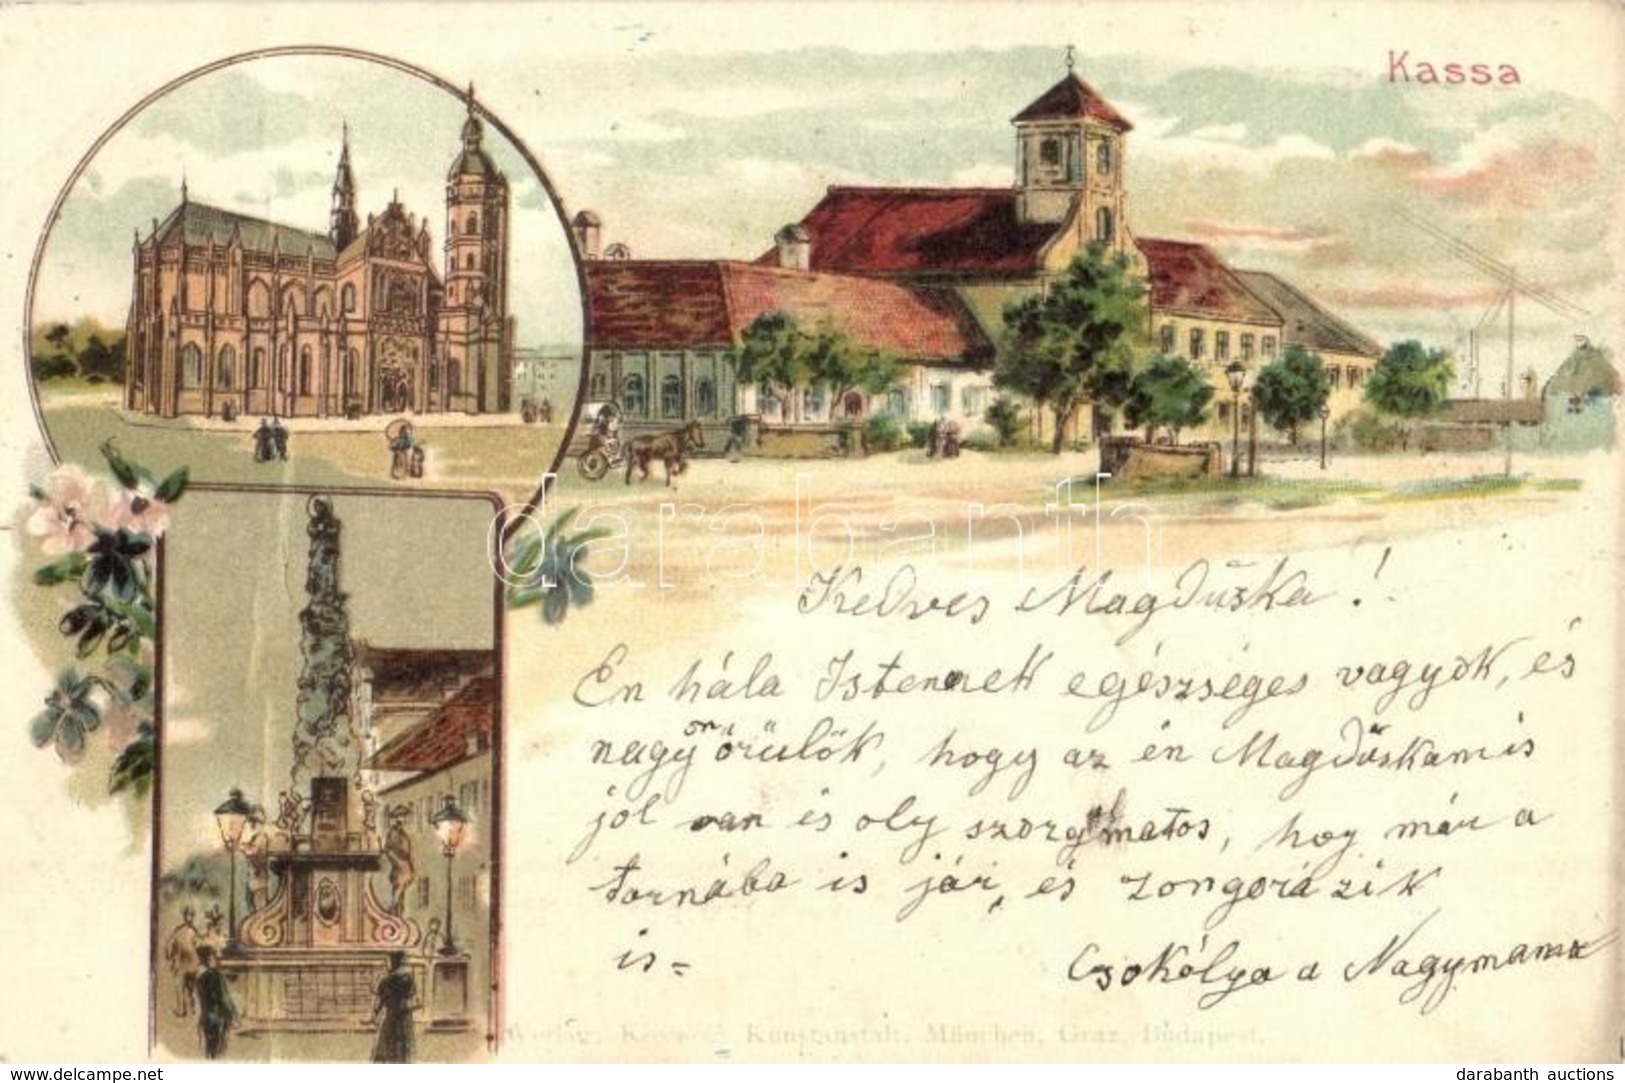 Kassa
darabanth
Kedves Magduska!
Én hála Istennek egészséges vagyok, és
nagyon örülök, hogy az én Magduskam is
jól van és oly szorgalmatos, hogy már a
tornába is jár, és zongorázik
is=
Csokólya a Nagymama
Verlag, Kunstanstalt, München, Graz, Budapest.
www.delcampe.net
darabanth auctions